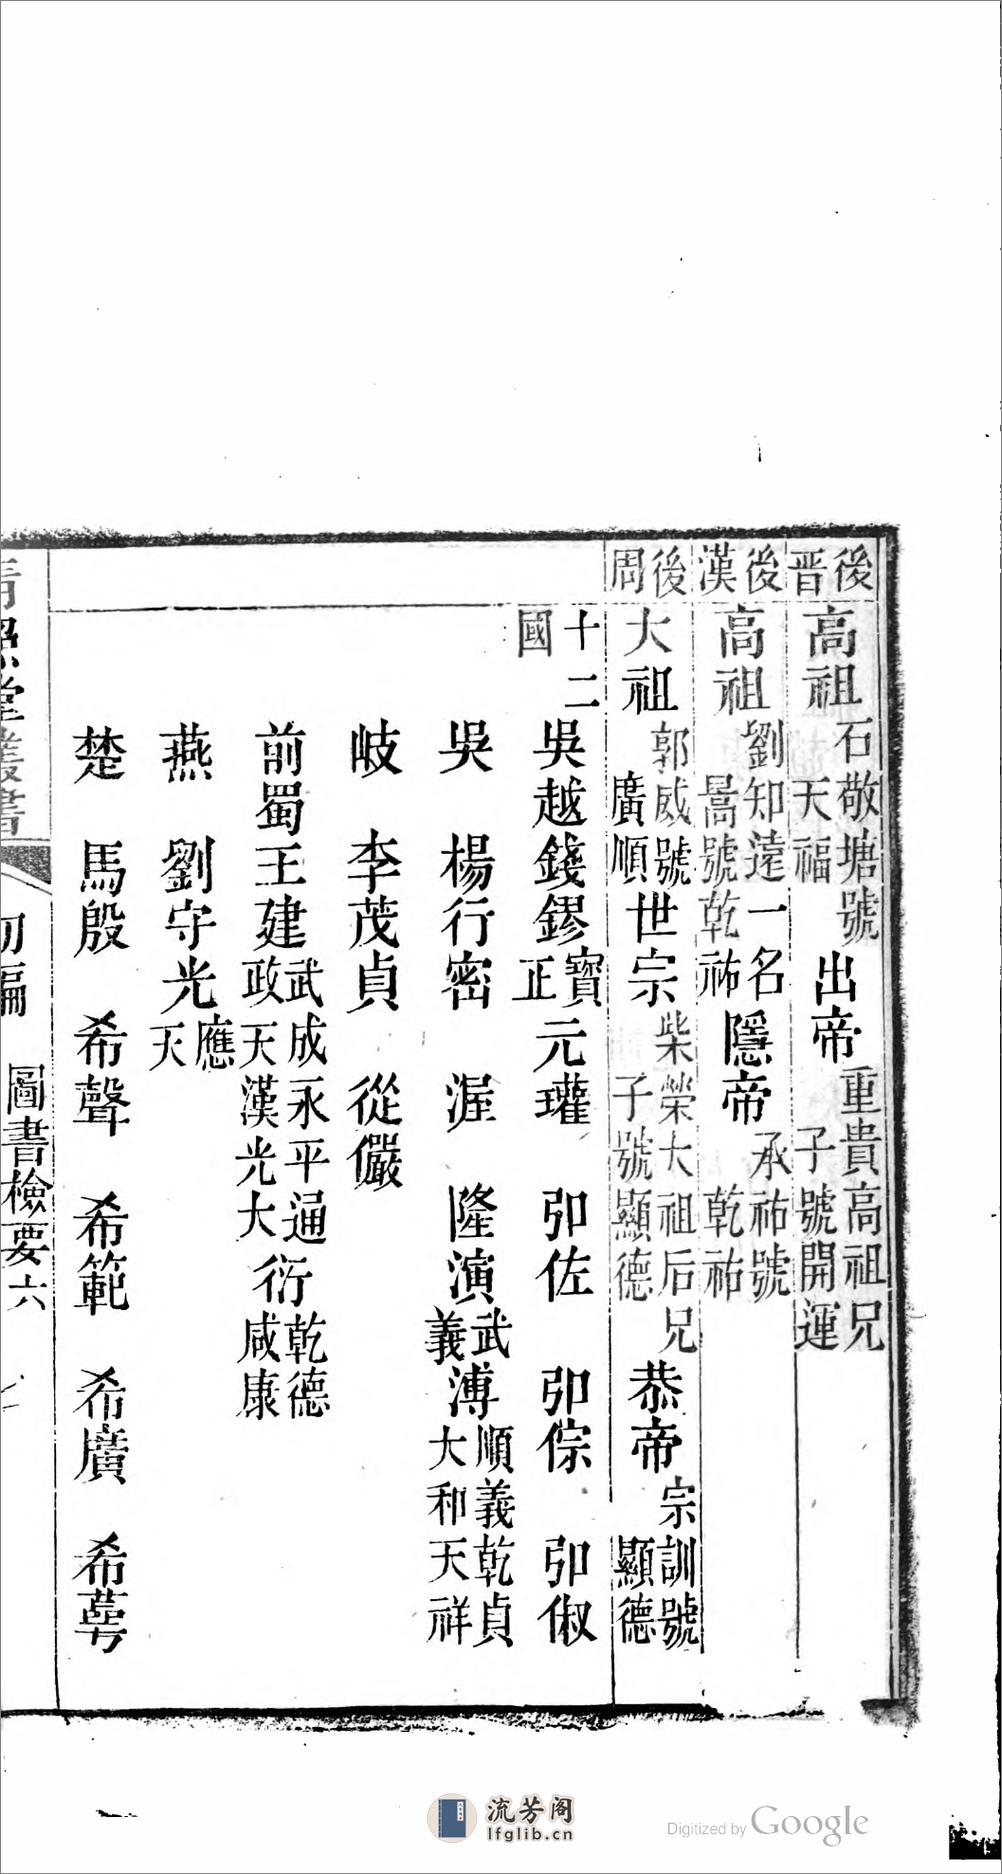 後晉 高祖 石敬塘號天福 出帝 重貴高祖兄子號開運
後漢 高祖 劉知遠一名暠號乾祐 隱帝 承祐號乾祐
後周 大祖 郭威號廣順 世宗 柴榮大祖后兄子號顯德 恭帝 宗訓號顯德
十二國 吳越錢鏐 寶正 元瓘 弘佐 弘倧 弘俶
吳 楊行密 渥 隆演 武義 溥 順義乾貞大和天祥
岐 李茂貞 從儼
前蜀王建 武成永平通政天漢光大 衍 乾德咸康
燕 劉守光 應天
楚 馬殷 希聲 希範 希廣 希萼
青照堂叢書 初編 圖書檢要六
流芳阁
lfglib.cn
Digitized by Google